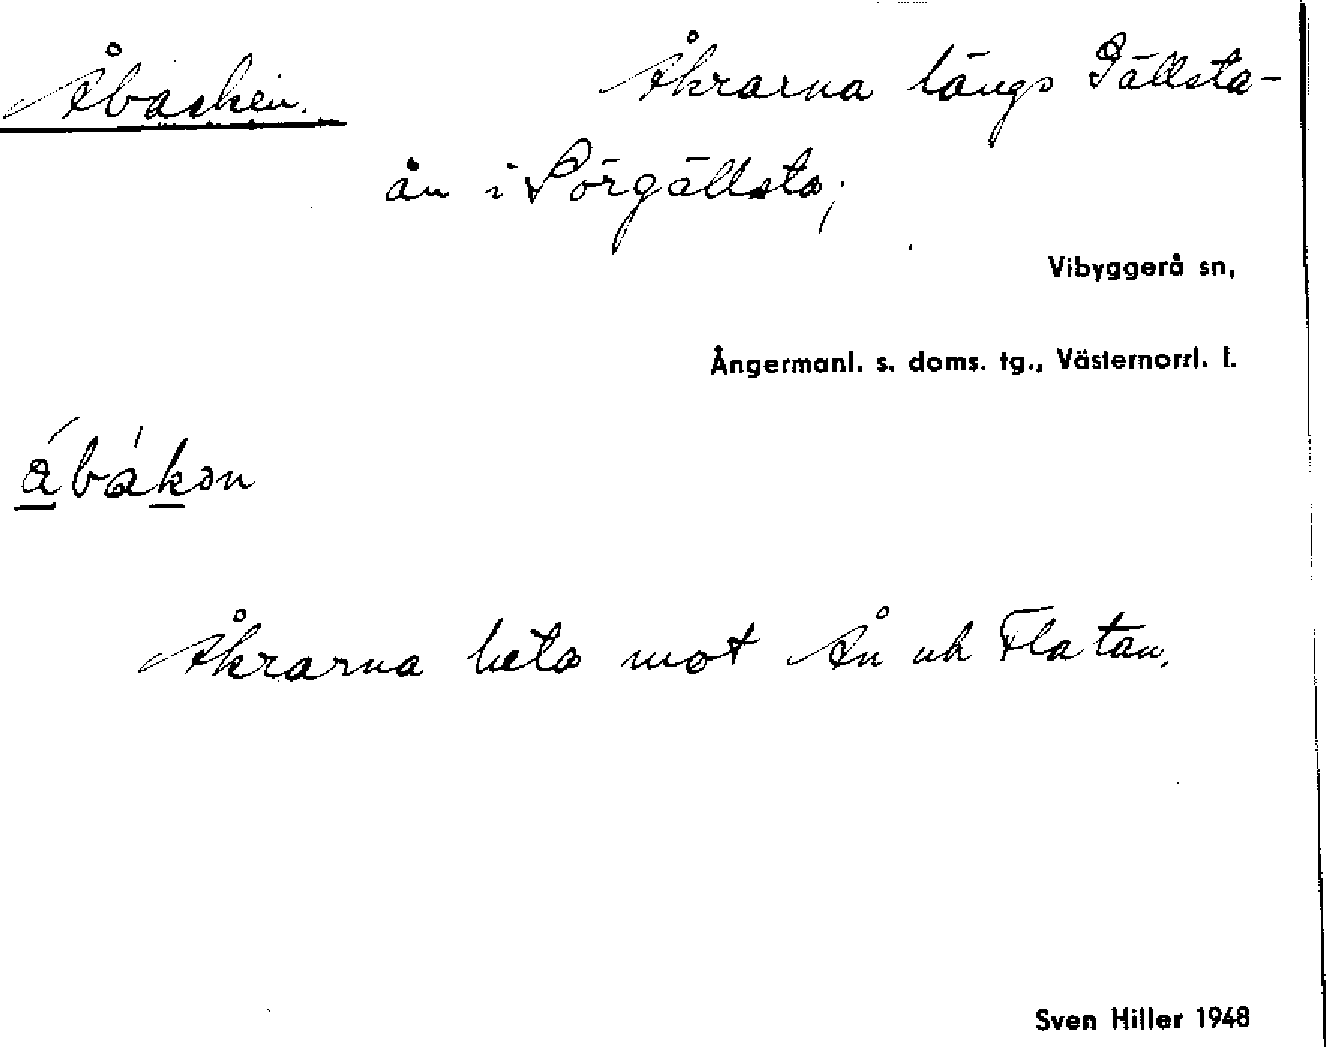 Åbacken. Åkrarna längs Gällsta-
ån i Sörgällsta;
Vibyggerå sn,
Ångermanl. s. doms. tg., Västernorrl. l.
åbákən
Åkrarna luta mot Ån och Flatan.
Sven Hiller 1948